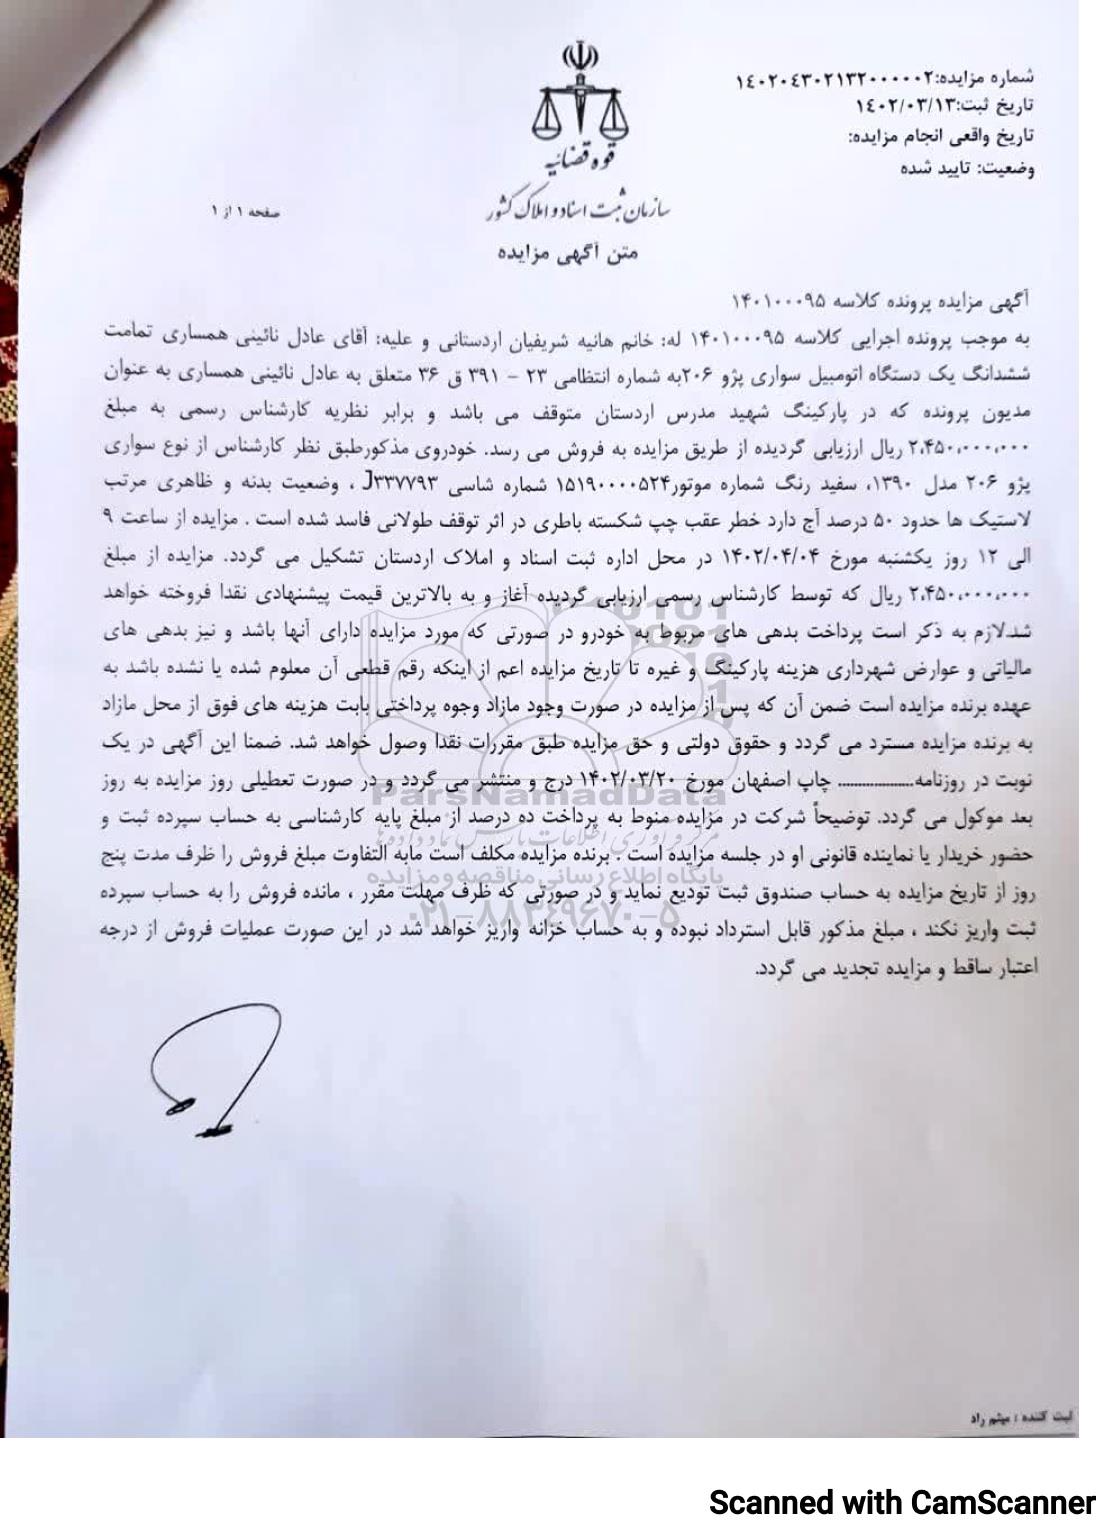 شماره مزایده:۱۴۰۲۰۴۳۰۲۱۳۲۰۰۰۰۰۲
تاریخ ثبت:۱۴۰۲/۰۳/۱۳
تاریخ واقعی انجام مزایده:
وضعیت: تایید شده
قوه قضائیه
سازمان ثبت اسناد و املاک کشور
صفحه ۱ از ۱
متن آگهی مزایده
آگهی مزایده پرونده کلاسه ۱۴۰۱۰۰۰۹۵
به موجب پرونده اجرایی کلاسه ۱۴۰۱۰۰۰۹۵ له: خانم هانیه شریفیان اردستانی و علیه: آقای عادل نائینی همساری تمامت
ششدانگ یک دستگاه اتومبیل سواری پژو ۲۰۶به شماره انتظامی ۲۳ – ۳۹۱ ق ۳۶ متعلق به عادل نائینی همساری به عنوان
مدیون پرونده که در پارکینگ شهید مدرس اردستان متوقف می باشد و برابر نظریه کارشناس رسمی به مبلغ
۲،۴۵۰،۰۰۰،۰۰۰ ریال ارزیابی گردیده از طریق مزایده به فروش می رسد. خودروی مذکورطبق نظر کارشناس از نوع سواری
پژو ۲۰۶ مدل ۱۳۹۰، سفید رنگ شماره موتور۱۵۱۹۰۰۰۰۵۲۴ شماره شاسی J۳۳۷۷۹۳ ، وضعیت بدنه و ظاهری مرتب
لاستیک ها حدود ۵۰ درصد آج دارد خطر عقب چپ شکسته باطری در اثر توقف طولانی فاسد شده است . مزایده از ساعت ۹
الی ۱۲ روز یکشنبه مورخ ۱۴۰۲/۰۴/۰۴ در محل اداره ثبت اسناد و املاک اردستان تشکیل می گردد. مزایده از مبلغ
۲،۴۵۰،۰۰۰،۰۰۰ ریال که توسط کارشناس رسمی ارزیابی گردیده آغاز و به بالاترین قیمت پیشنهادی نقدا فروخته خواهد
شد.لازم به ذکر است پرداخت بدهی های مربوط به خودرو در صورتی که مورد مزایده دارای آنها باشد و نیز بدهی های
مالیاتی و عوارض شهرداری هزینه پارکینگ و غیره تا تاریخ مزایده اعم از اینکه رقم قطعی آن معلوم شده یا نشده باشد به
عهده برنده مزایده است ضمن آن که پس از مزایده در صورت وجود مازاد وجوه پرداختی بابت هزینه های فوق از محل مازاد
به برنده مزایده مسترد می گردد و حقوق دولتی و حق مزایده طبق مقررات نقدا وصول خواهد شد. ضمنا این آگهی در یک
نوبت در روزنامه.................. چاپ اصفهان مورخ ۱۴۰۲/۰۳/۲۰ درج و منتشر می گردد و در صورت تعطیلی روز مزایده به روز
بعد موکول می گردد. توضیحاً شرکت در مزایده منوط به پرداخت ده درصد از مبلغ پایه کارشناسی به حساب سپرده ثبت و
حضور خریدار یا نماینده قانونی او در جلسه مزایده است . برنده مزایده مکلف است مابه التفاوت مبلغ فروش را ظرف مدت پنج
روز از تاریخ مزایده به حساب صندوق ثبت تودیع نماید و در صورتی که ظرف مهلت مقرر ، مانده فروش را به حساب سپرده
ثبت واریز نکند ، مبلغ مذکور قابل استرداد نبوده و به حساب خزانه واریز خواهد شد در این صورت عملیات فروش از درجه
اعتبار ساقط و مزایده تجدید می گردد.
ParsNamadData
مرکز فرآوری اطلاعات پارس نماد داده ها
پایگاه اطلاع رسانی مناقصه و مزایده
۰۲۱-۸۸۳۴۹۶۷۰-۵
ثبت کننده : میثم راد
Scanned with CamScanner